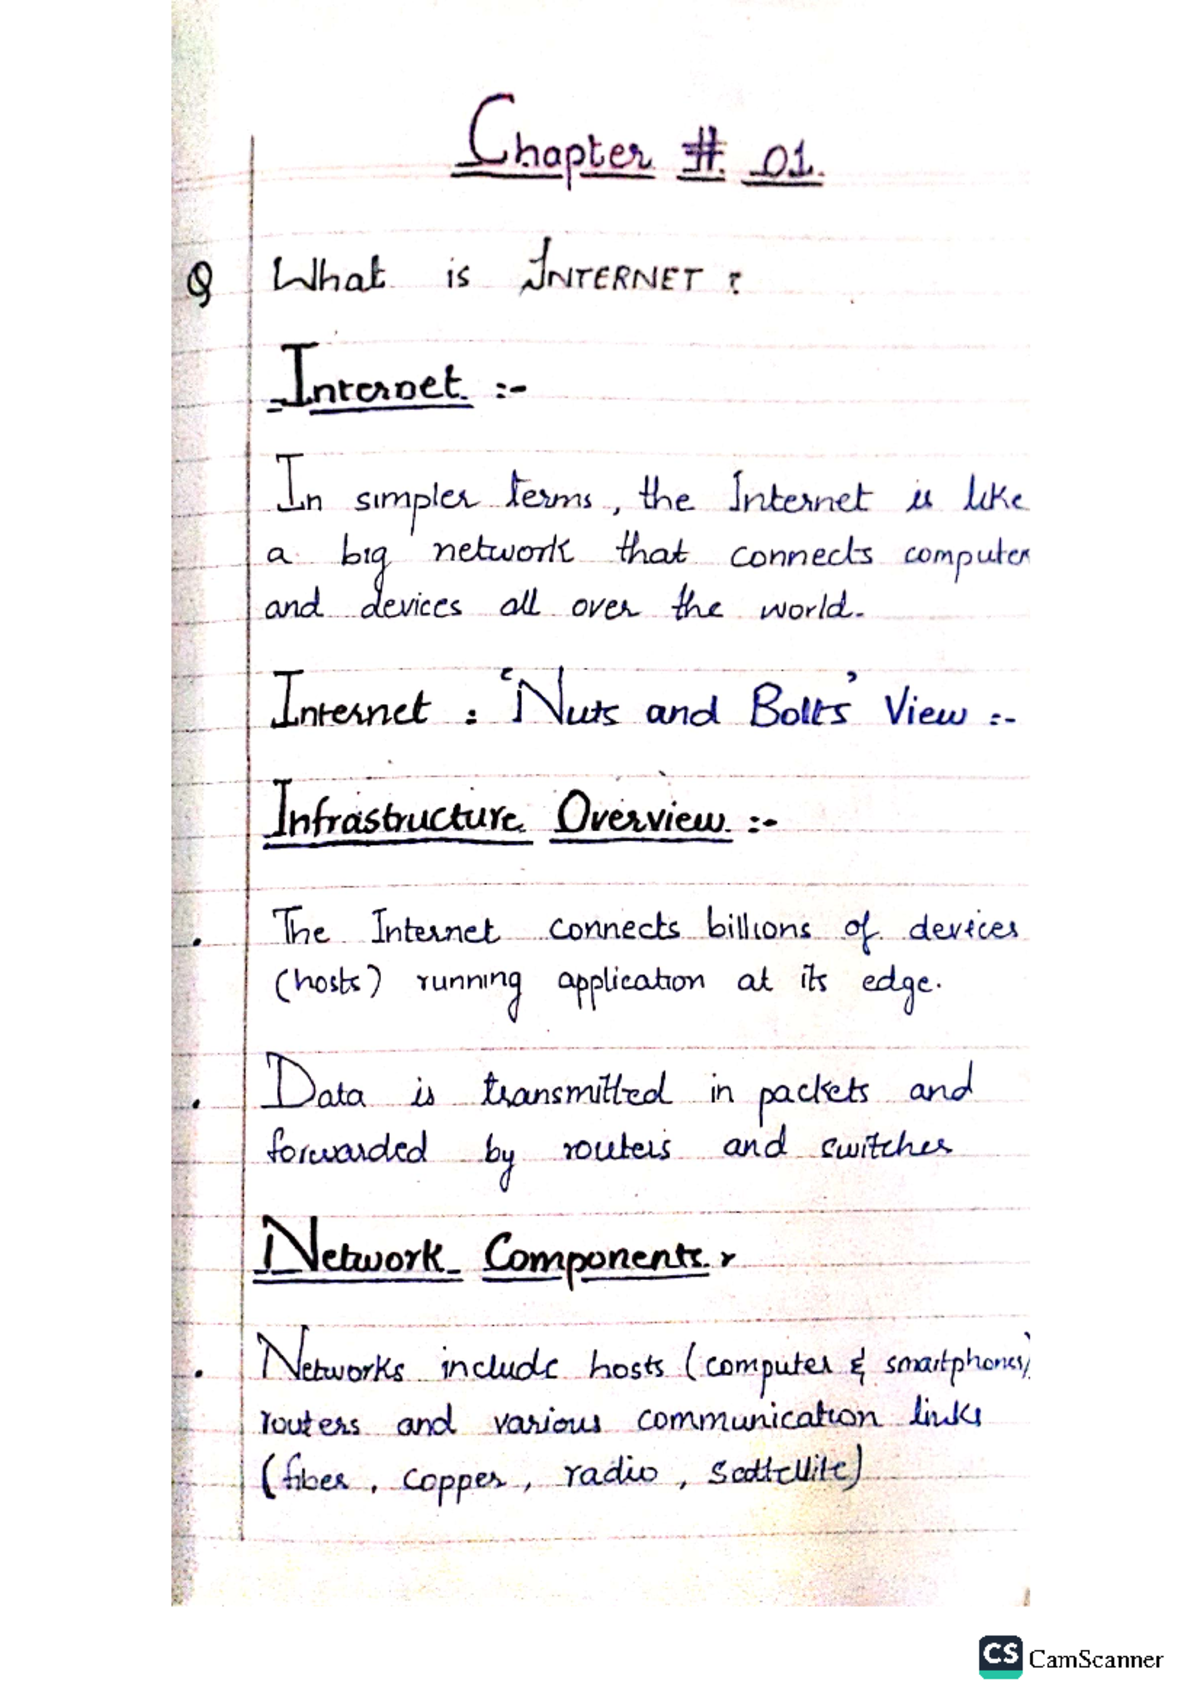 Chapter # 01.
Q What is INTERNET ?
Internet :-
In simpler terms, the Internet is like
a big network that connects computer
and devices all over the world.
Internet : 'Nuts and Bolts' View :-
Infrastructure Overview :-
. The Internet connects billions of devices
(hosts) running application at its edge.
. Data is transmitted in packets and
forwarded by routers and switches
Network Components :
. Networks include hosts (computer & smartphones)
routers and various communication links
(fiber, copper, radio, scattellite)
CS CamScanner